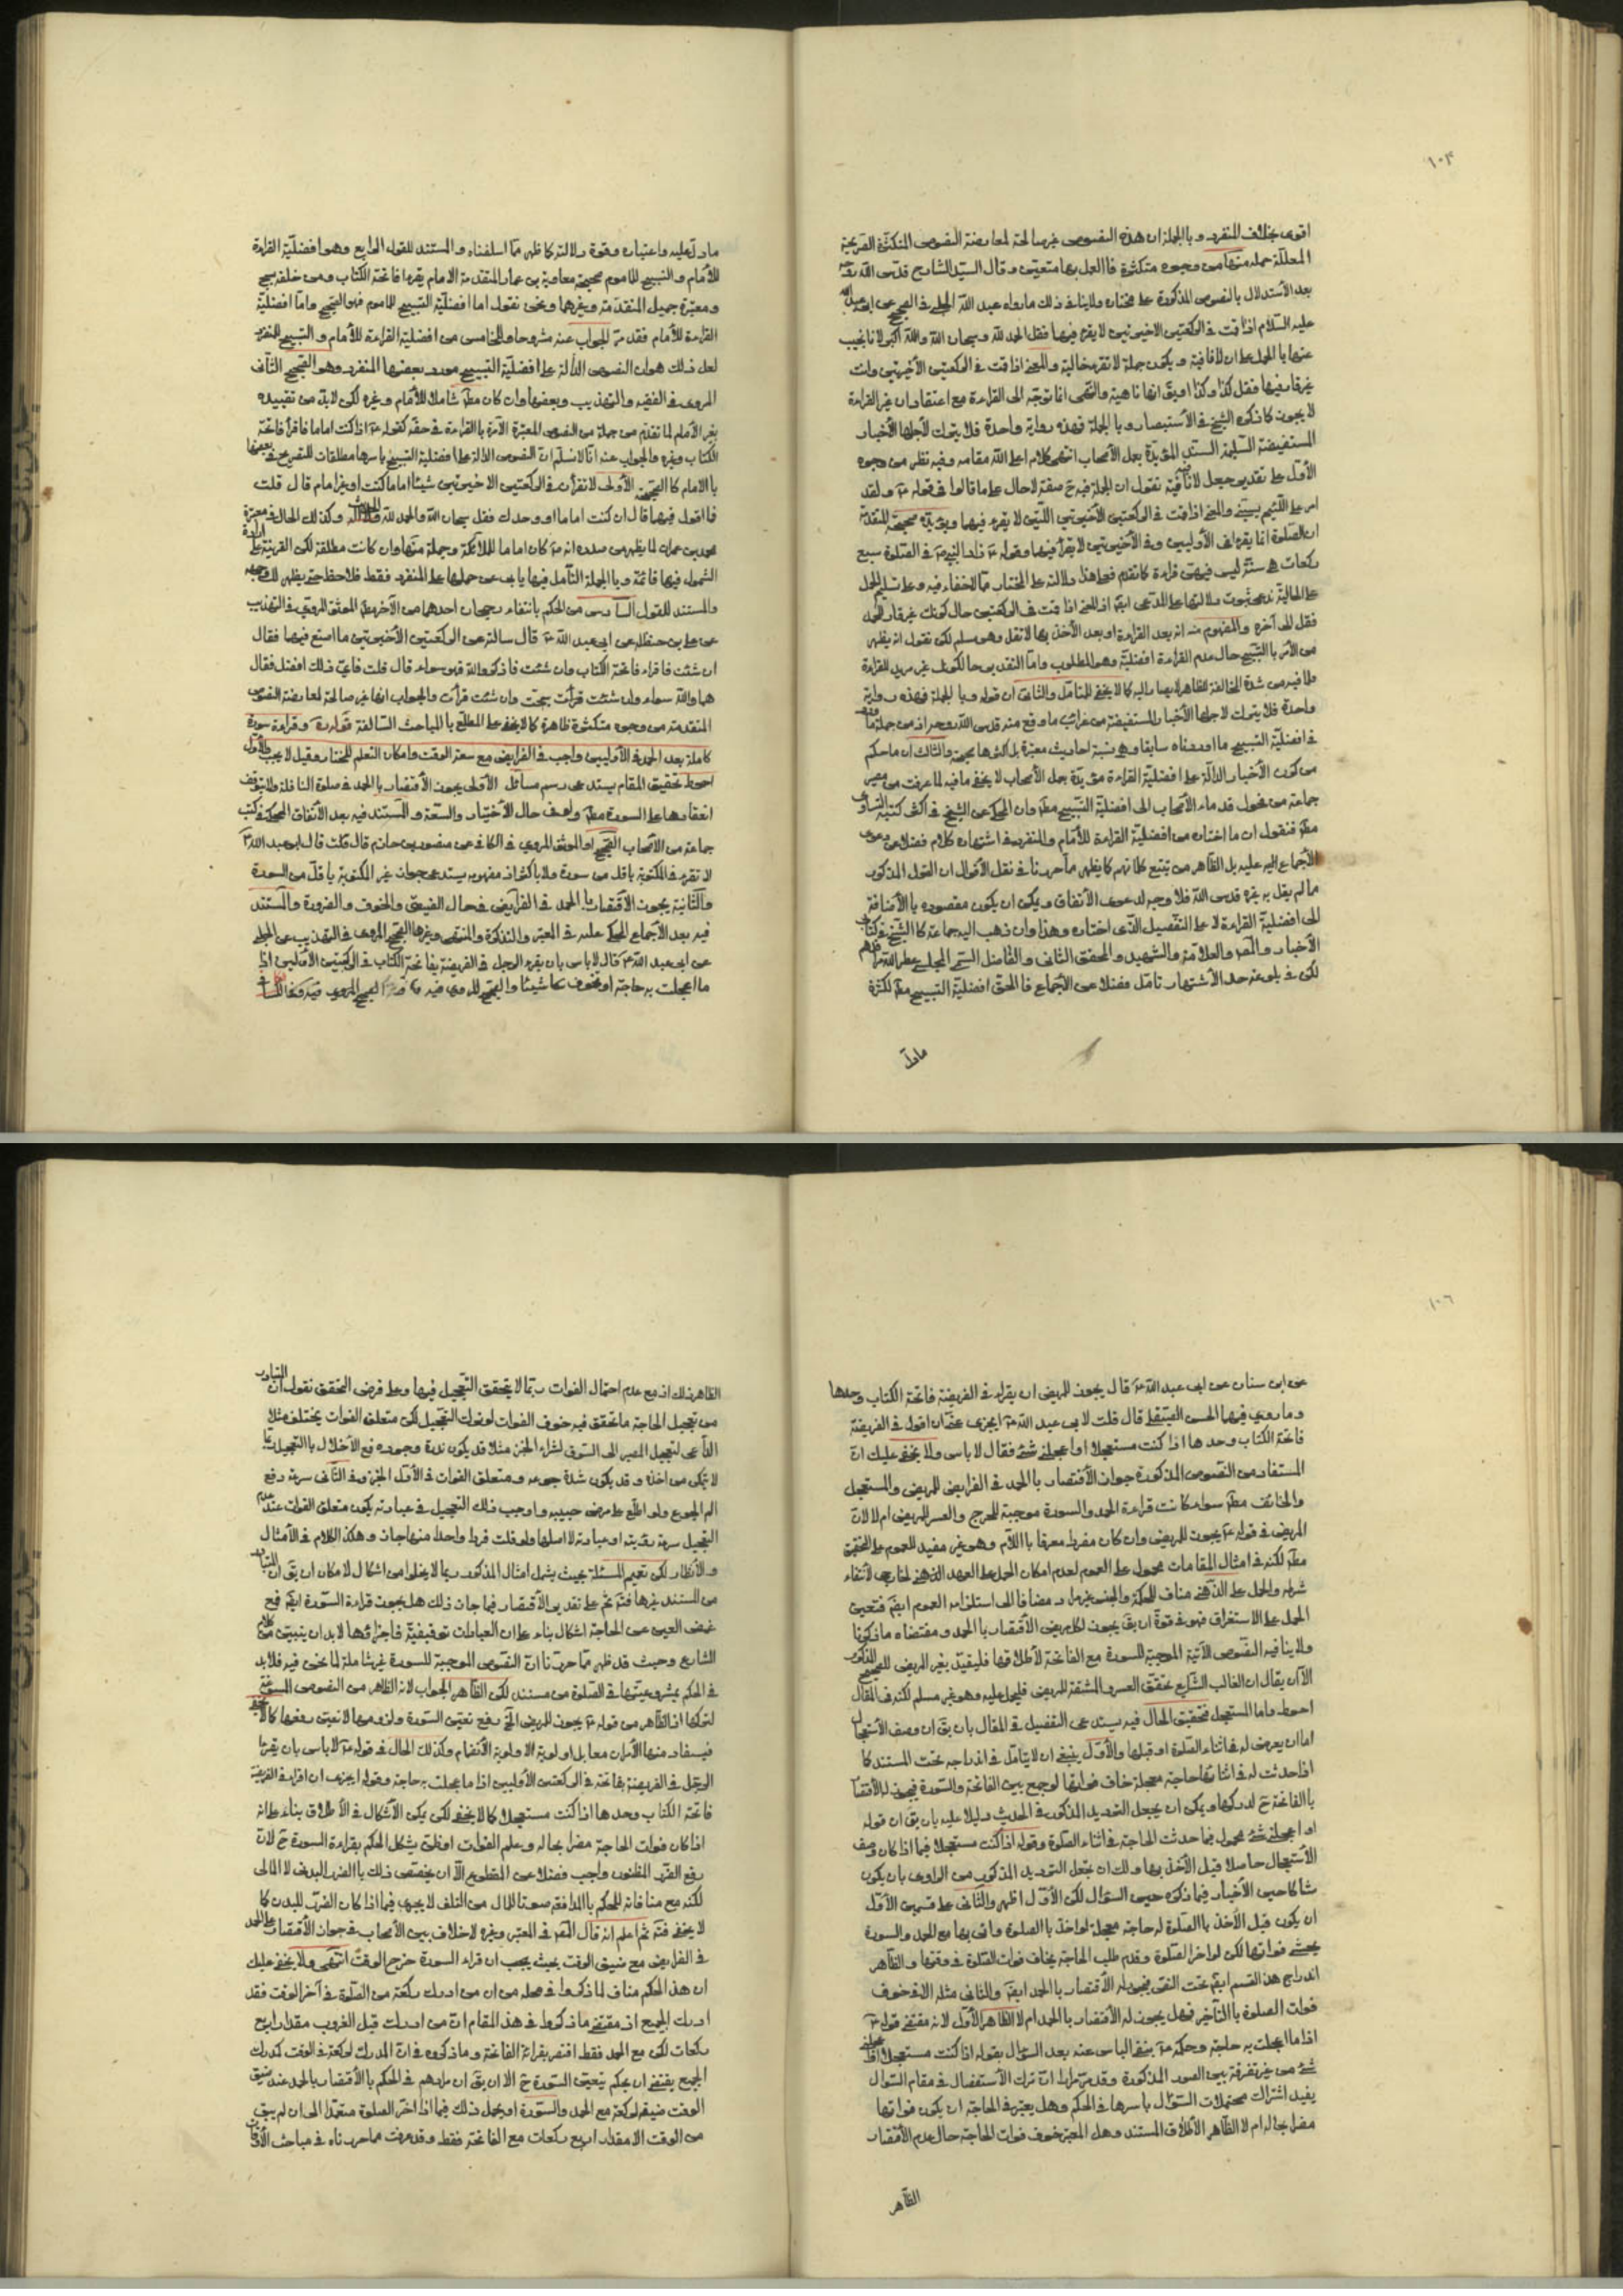 ١٠٤
اقوى بخلاف المنفرد وبالجملة ان هذه النصوص غير صالحة لمعارضة النصوص المتكثرة الصريحة
المعللة جملة منها من وجوه متكثرة فالعمل بها متعين وقال السيد الشارح قدس الله روحه
بعد الأستدلال بالنصوص المذكورة على مختاره ولا ينافي ذلك ما رواه عبد الله الحلبي في الصحيح عن ابي عبد الله
عليه السلام اذا قمت في الركعتين الاخيرتين لا يقرء فيهما فقل الحمد لله وسبحان الله والله اكبر لانا نجيب
عنها بالحمل على ان لا نافية ويكون جملة لا تقرء حالية والمعنى اذا قمت في الركعتين الأخيرتين وانت
غير قار فيهما فقل كذا وكذا او يقال انها ناهية والنهي انما توجه الى القراءة مع اعتقاد ان غير القراءة
لا يجوز كما ذكره الشيخ في الأستبصار وبالجملة فهذه رواية واحدة فلا يترك لأجلها الأخبار
المستفيضة السليمة السند المؤيدة بعمل الأصحاب انتهى كلامه اعلى الله مقامه وفيه نظر من وجوه
الأول على تقدير جعل لا نافية نقول ان الجملة فيه ح صفة لا حال على ما قالوا في قوله ولقد
امر على اللئيم يسبني والمعنى اذا قمت في الركعتين الأخيرتين اللتين لا يقرء فيهما ويؤيده صحيحة المتقدمة
ان الصلوة انما يقرء في الأوليين وفي الأخيرتين لا يقرأ فيهما وقوله فزاد النبي في الصلوة سبع
ركعات هي سنة ليس فيهن قراءة كما تقدم فعلى هذا دلالته على المختار مما لا خفاء فيه وعلى تسليم الحمل
على الحالية ندعي ثبوت دلالتها على المدعى ايضا اذ المعنى اذا قمت في الركعتين حال كونك غير قار الحمد
فقل الى آخره والمفهوم منه انه بعد القراءة او بعد الأخذ بها لا تقل وهو مسلم لكن نقول انه يظهر
من الأمر بالتسبيح حال عدم القراءة افضلية وهو المطلوب واما التقدير حال كونك غير مريد للقراءة
فما فيه من شدة المخالفة للظاهر لا يصار اليه كما لا يخفى للمتأمل والثاني ان قوله وبالجملة فهذه رواية
واحدة فلا يترك لأجلها الأخبار المستفيضة من غرائب ما وقع منه قدس الله روحه
في افضلية التسبيح ما اوردناه سابقا وهي ستة احاديث معتبرة بل اكثرها صحيحة والثالث ان ما حكم
من كون الأخبار الدالة على افضلية القراءة مؤيدة بعمل الأصحاب لا يخفى ما فيه لما عرفت من مصير
جماعة من فحول قدماء الأصحاب الى افضلية التسبيح مطلقا وان المحكي عن الشيخ في اكثر كتبه التساوي
مطلقا فنقول ان ما اختاره من افضلية القراءة للأمام والمنفرد في اشتهاره كلام فضلا عن دعوى
الأجماع اليه عليه بل الظاهر من تتبع كلماتهم كما يظهر مما حررنا في نقل الأقوال ان القول المذكور
ما لم يقل به غيره قدس الله فلا وجه لدعوى الأتفاق ويمكن ان يكون مقصوده بالأضافة
الى افضلية القراءة لا على التفصيل الذي اختاره وهذا وان ذهب اليه جماعة كالشيخ في كتابي
الأخبار والمص والعلامة والشهيد والمحقق الثاني والفاضل السمي المجلسي عطر الله مراقدهم
لكن في بلوغه حد الأشتهار تأمل فضلا عن الأجماع فالحق افضلية التسبيح مطلقا لكثرة
ما دل
ما دل عليه واعتباره وقوة دلالته كما ظهر مما اسلفناه والمستند للقول الرابع وهو افضلية القراءة
للأمام والتسبيح للماموم صحيحة معاوية بن عمار المتقدمة الامام يقرء فاتحة الكتاب ومن خلفه يسبح
ومعتبرة جميل المتقدمة وغيرهما ونحن نقول اما افضلية التسبيح للماموم فهو الصحيح واما افضلية
القراءة للأمام فقد مر الجواب عنه مشروحا وللخامس من افضلية القراءة للأمام والتسبيح للمنفرد
لعل ذلك هو ان النصوص الدالة على افضلية التسبيح مورد بعضها المنفرد وهو الصحيح الثاني
المروي في الفقيه والتهذيب وبعضها وان كان مطلقا شاملا للأمام وغيره لكن لابد من تقييده
بغير الأمام لما تقدم من جملة من النصوص المعتبرة الآمرة بالقراءة في حقه كقوله اذا كنت اماما فاقرأ فاتحة
الكتاب وغيره والجواب عنه انا لا نسلم ان النصوص الدالة على افضلية التسبيح باسرها مطلقات للتصريح في بعضها
بالامام كالصحيحة الأولى لا تقرأن في الركعتين الاخيرتين شيئا اماما كنت او غير امام قال قلت
فما اقول فيهما قال ان كنت اماما او وحدك فقل سبحان الله والحمد لله ولا اله الا الله وكذلك الحال في معتبرة
محمد بن عمران لما يظهر من صدره انه كان اماما للملائكة وجملة منها وان كانت مطلقة لكن القرينة على ارادة
الشمول فيها قائمة وبالجملة التأمل فيها يابى عن حملها على المنفرد فقط فلاحظ حتى يظهر لك وجهه
والمستند للقول السادس من الحكم بانتفاء رجحان احدهما من الآخر مطلقا الموثق المروي في التهذيب
عن علي بن حنظلة عن ابي عبد الله قال سألته عن الركعتين الأخيرتين ما اصنع فيهما فقال
ان شئت فاقراء فاتحة الكتاب وان شئت فاذكر الله فهو سواء قال قلت فاي ذلك افضل فقال
هما والله سواء وان شئت قرأت سبحت وان شئت قرأت والجواب انها غير صالحة لمعارضة النصوص
المتقدمة من وجوه متكثرة ظاهرة كما لا يخفى على المطلع بالمباحث السالفة قوله وقراءة سورة
كاملة بعد الحمد في الأوليين واجب في الفرايض مع سعة الوقت وامكان التعلم للمختار وقيل لا يجب والأول
احوط تحقيق المقام يستدعي رسم مسائل الأولى يجوز الأقتصار بالحمد في صلوة النافلة ولا يتوقف
انعقادها على السورة مطلقا ولو في حال الأختيار والسعة والمستند فيه بعد الأتفاق المحكي في كتب
جماعة من الأصحاب الصحيح او الموثق المروي في الكافي عن منصور بن حازم قال قال ابو عبد الله
لا تقرء في المكتوبة باقل من سورة ولا باكثر اذ مفهومه يستدعي جواز غير المكتوبة باقل من السورة
والثانية يجوز الأقتصار بالحمد في الفرايض في حال الضيق والخوف والضرورة والمستند
فيه بعد الأجماع المحكي عليه في المعتبر والتذكرة والمنتهى وغيرها الصحيح المروي في التهذيب عن الحلبي
عن ابي عبد الله قال لا باس بان يقرء الرجل في الفريضة بفاتحة الكتاب في الركعتين الأوليين اذا
ما اعجلت به حاجة او تخوف شيئا والصحيح المروي فيه
١٠٦
عن ابن سنان عن ابي عبد الله قال يجوز للمريض ان يقراء في الفريضة فاتحة الكتاب وحدها
وما روي فيهما الحسن الصيقل قال قلت لابي عبد الله ايجزي عني ان اقول في الفريضة
فاتحة الكتاب وحدها اذا كنت مستعجلا او اعجلني شئ فقال لا باس ولا يخفى عليك ان
المستفاد من النصوص المذكورة جواز الأقتصار بالحمد في الفرايض للمريض والمستعجل
والخائف مطلقا سواء كانت قراءة الحمد والسورة موجبة للحرج والعسر للمريض ام لا لان
المريض في قوله يجوز للمريض وان كان مفردا معرفا باللام وهو غير مفيد للعموم على التحقيق
مطلقا لكنه في امثال المقامات محمول على العموم لعدم امكان الحمل على العهد الذهني لانتفاء
شرطه والحمل على الذهني مناف للحكمة والجنس غير مراد مضافا الى استلزامه العموم ايضا فتعين
الحمل على الاستغراق فهو في قوة ان يقال يجوز لكل مريض الأقتصار بالحمد ومقتضاه ما ذكرنا
ولا ينافيه النصوص الآتية الموجبة للسورة مع الفاتحة لأطلاقها فليقيد بغير المريض للصحيح المذكور
الا ان يقال ان الغالب الشايع تحقق العسر والمشقة للمريض فليحمل عليه وهو غير مسلم لكنه في المقال
احوط واما المستعجل فتحقيق الحال فيه يستدعي التفصيل في المقال بان يقال ان وصف الأستعجال
اما ان يعرض له في اثناء الصلوة او قبلها والأول ينبغي ان لا يتأمل في اندراجه تحت المستند كما
اذا حدثت له في اثنائها حاجة معجلة خاف فواتها لو جمع بين الفاتحة والسورة فيجوز له الأقتصار
بالفاتحة ح لدركها ويمكن ان يجعل الترديد المذكور في الحديث دليلا عليه بان يقال ان قوله
او اعجلني شئ محمول فيما حدثت الحاجة في اثناء الصلوة وقوله اذا كنت مستعجلا فيما اذا كان وصف
الأستعجال حاصلا قبل الأخذ بها ولك ان تجعل الترديد المذكور من الراوي بان يكون
شاكا حين الأخبار فيما ذكره حين السؤال لكن الأول اظهر والثاني على قسمين الأول
ان يكون قبل الأخذ بالصلوة له حاجة معجلة لو اخذ بالصلوة واتى بها مع الحمد والسورة
يخشى فواتها لكن لو اخر الصلوة وقدم طلب الحاجة يخاف فوات الصلوة في وقتها والظاهر
اندراج هذا القسم ايضا تحت النص فيجوز له الأقتصار بالحمد ايضا والثاني مثله الا في خوف
فوات الصلوة بالتأخير فهل يجوز له الأقتصار بالحمد ام لا الظاهر الأول لانه مقتضى قوله
اذا ما اعجلت به حاجة وحكمه بنفي الباس عنه بعد السؤال بقوله اذا كنت مستعجلا او اعجلني
شئ من غير تفرقة بين الصور المذكورة وقد مر مرارا ان ترك الأستفصال في مقام السؤال
يفيد اشتراك محتملات السؤال باسرها في الحكم وهل يعتبر في الحاجة ان يكون فواتها
مضرا بحاله ام لا الظاهر الأطلاق المستند وهل المعتبر خوف فوات الحاجة حال عدم الأقتصار
الظاهر
الظاهر ذلك اذ مع عدم احتمال الفوات ربما لا يتحقق التعجيل فيها وعلى فرض التحقق نقول ان المتبادر
من تعجيل الحاجة ما تحقق فيه خوف الفوات لو ترك التعجيل لكن متعلق الفوات يختلف مثلا
الداعي لتعجيل المصير الى السوق لشراء الخبز مثلا قد يكون ندرة وجوده فمع الأخلال بالتعجيل ربما
لا يتمكن من اخذه وقد يكون شدة جوعه ومتعلق الفوات في الأول الخبز وفي الثاني سرعة رفع
الم الجوع ولو اطلع على مرض حبيبه واوجب ذلك التعجيل في عيادته يكون متعلق الفوات عند عدم
التعجيل سرعة رؤيته او عيادته لا اصلها ولو قلت فرد واحد منها جاز وهكذا الكلام في الأمثال
والأنظار لكن تعميم المسئلة بحيث يشمل امثال المذكور ربما لا يخلوا من اشكال لامكان ان يقال ان المتبادر
من المستند غيرها فتم ثم على تقدير الأقتصار فيما جاز ذلك هل يجوز قراءة السورة ايضا مع
غمض العين عن الحاجة اشكال بناء على ان العبادات توقيفية فاجزاؤها لابد ان يتبين من كلام
الشارع وحيث قد ظهر مما حررنا ان النصوص الموجبة للسورة غير شاملة لما نحن فيه فلابد
في الحكم بمشروعيتها في الصلوة من مستند لكن الظاهر الجواب لانه الظاهر من النصوص المسوغة
لتركها اذ الظاهر من قوله يجوز للمريض الخ رفع تعين السورة ولزومها لا تعين رفعها كما لا يخفى
فيستفاد منها الأمران معا بل اولوية الاولوية الأنضمام وكذلك الحال في قوله لا باس بان يقرء
الرجل في الفريضة بفاتحة في الركعتين الأوليين اذا ما عجلت به حاجة وقوله ايجزي ان اقراء في الفريضة
فاتحة الكتاب وحدها اذا كنت مستعجلا كما لا يخفى لكن يمكن الأشكال في الأطلاق بناء على انه
اذا كان فوات الحاجة مضرا بحاله وعلم الفوات او ظن يشكل الحكم بقراءة السورة ح لان
رفع الضرر المظنون واجب فضلا عن المقطوع الا ان يخصص ذلك بالضرر البدني لا المالي
لكنه مع منافاته للحكم بالمدافعة صونا للمال من التلف لا يجري فيما اذا كان الضرر للبدن كما
لا يخفى فتم ثم اعلم انه قال المص في المعتبر وغيره لا خلاف بين الأصحاب في جواز الأقتصار على الحمد
في الفرايض مع ضيق الوقت بحيث يجب ان قراء السورة خرج الوقت انتهى ولا يخفى عليك
ان هذا الحكم مناف لما ذكروا في محله من ان من ادرك ركعة من الصلوة في آخر الوقت فقد
ادرك الجميع اذ مقتضى ما ذكروا في هذا المقام ان من ادرك قبل الغروب مقدار اربع
ركعات لكن مع الحمد فقط اقتصر بقراءة الفاتحة وما ذكروه في ان المدرك لركعة في الوقت كمدرك
الجميع يقتضي ان يحكم بتعين السورة ح الا ان يقال ان مرادهم في الحكم بالأقتصار بالحمد عند ضيق
الوقت ضيقه لركعة مع الحمد والسورة او يحمل ذلك فيما اذا اخر الصلوة متعمدا الى ان لم يبق
من الوقت الا مقدار اربع ركعات مع الفاتحة فقط وقد عرفت مما حررناه في مباحث الأوقات